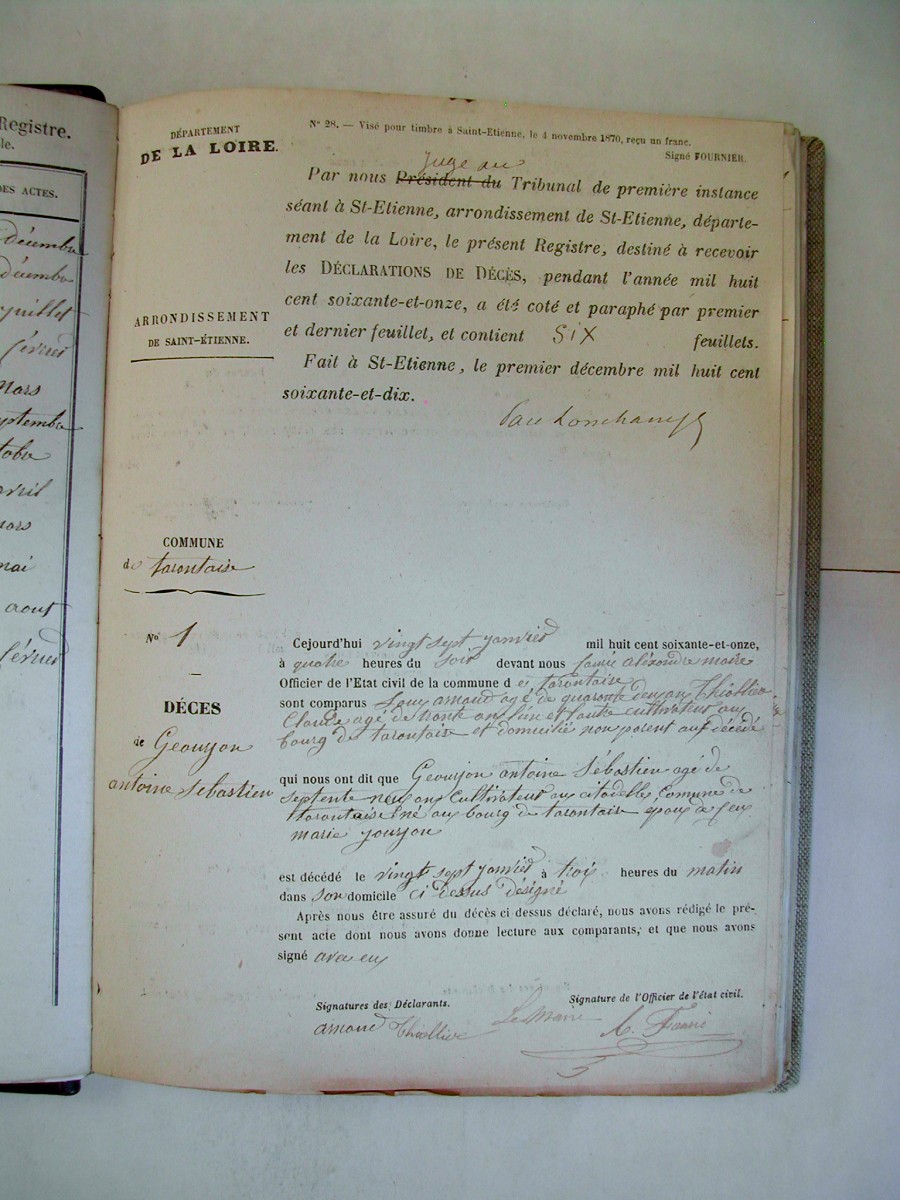 Registre.
le.
DES ACTES.
décembre
décembre
juillet
février
mars
septembre
octobre
avril
mars
mai
aout
février
DÉPARTEMENT
DE LA LOIRE.
ARRONDISSEMENT
DE SAINT-ÉTIENNE.
N° 28. — Visé pour timbre à Saint-Etienne, le 4 novembre 1870, reçu un franc.
Signé FOURNIER.
Juge au
Par nous Président du Tribunal de première instance
séant à St-Etienne, arrondissement de St-Etienne, départe-
ment de la Loire, le présent Registre, destiné à recevoir
les DÉCLARATIONS DE DÉCÈS, pendant l'année mil huit
cent soixante-et-onze, a été coté et paraphé par premier
et dernier feuillet, et contient six feuillets.
Fait à St-Etienne, le premier décembre mil huit cent
soixante-et-dix.
COMMUNE
de tarentaise
N° 1
DÉCES
de Geourjon
antoine Sébastien
Cejourd'hui vingt sept janvier mil huit cent soixante-et-onze,
à quatre heures du soir devant nous faure aléxandre maire
Officier de l'Etat civil de la commune d e tarentaise
sont comparus arnaud agé de quarante deux an Thiollier
Claude agé de trente an l'un et l'autre cultivateur au
bourg de tarentaise et domicilié non parent au décédé
qui nous ont dit que Geourjon antoine Sébastien agé de
septente neuf an cultivateur au citadelle, Commune de
tarentaise né au bourg de tarentaise epoux de feu
marie jourjon
est décédé le vingt sept janvier à trois heures du matin
dans son domicile ci dessus désigné
Après nous être assuré du décès ci dessus déclaré, nous avons rédigé le pré-
sent acte dont nous avons donne lecture aux comparants, et que nous avons
signé avec eux
Signatures des Déclarants.
Signature de l'Officier de l'état civil.
arnaud Thiollier Le Maire A. Faure